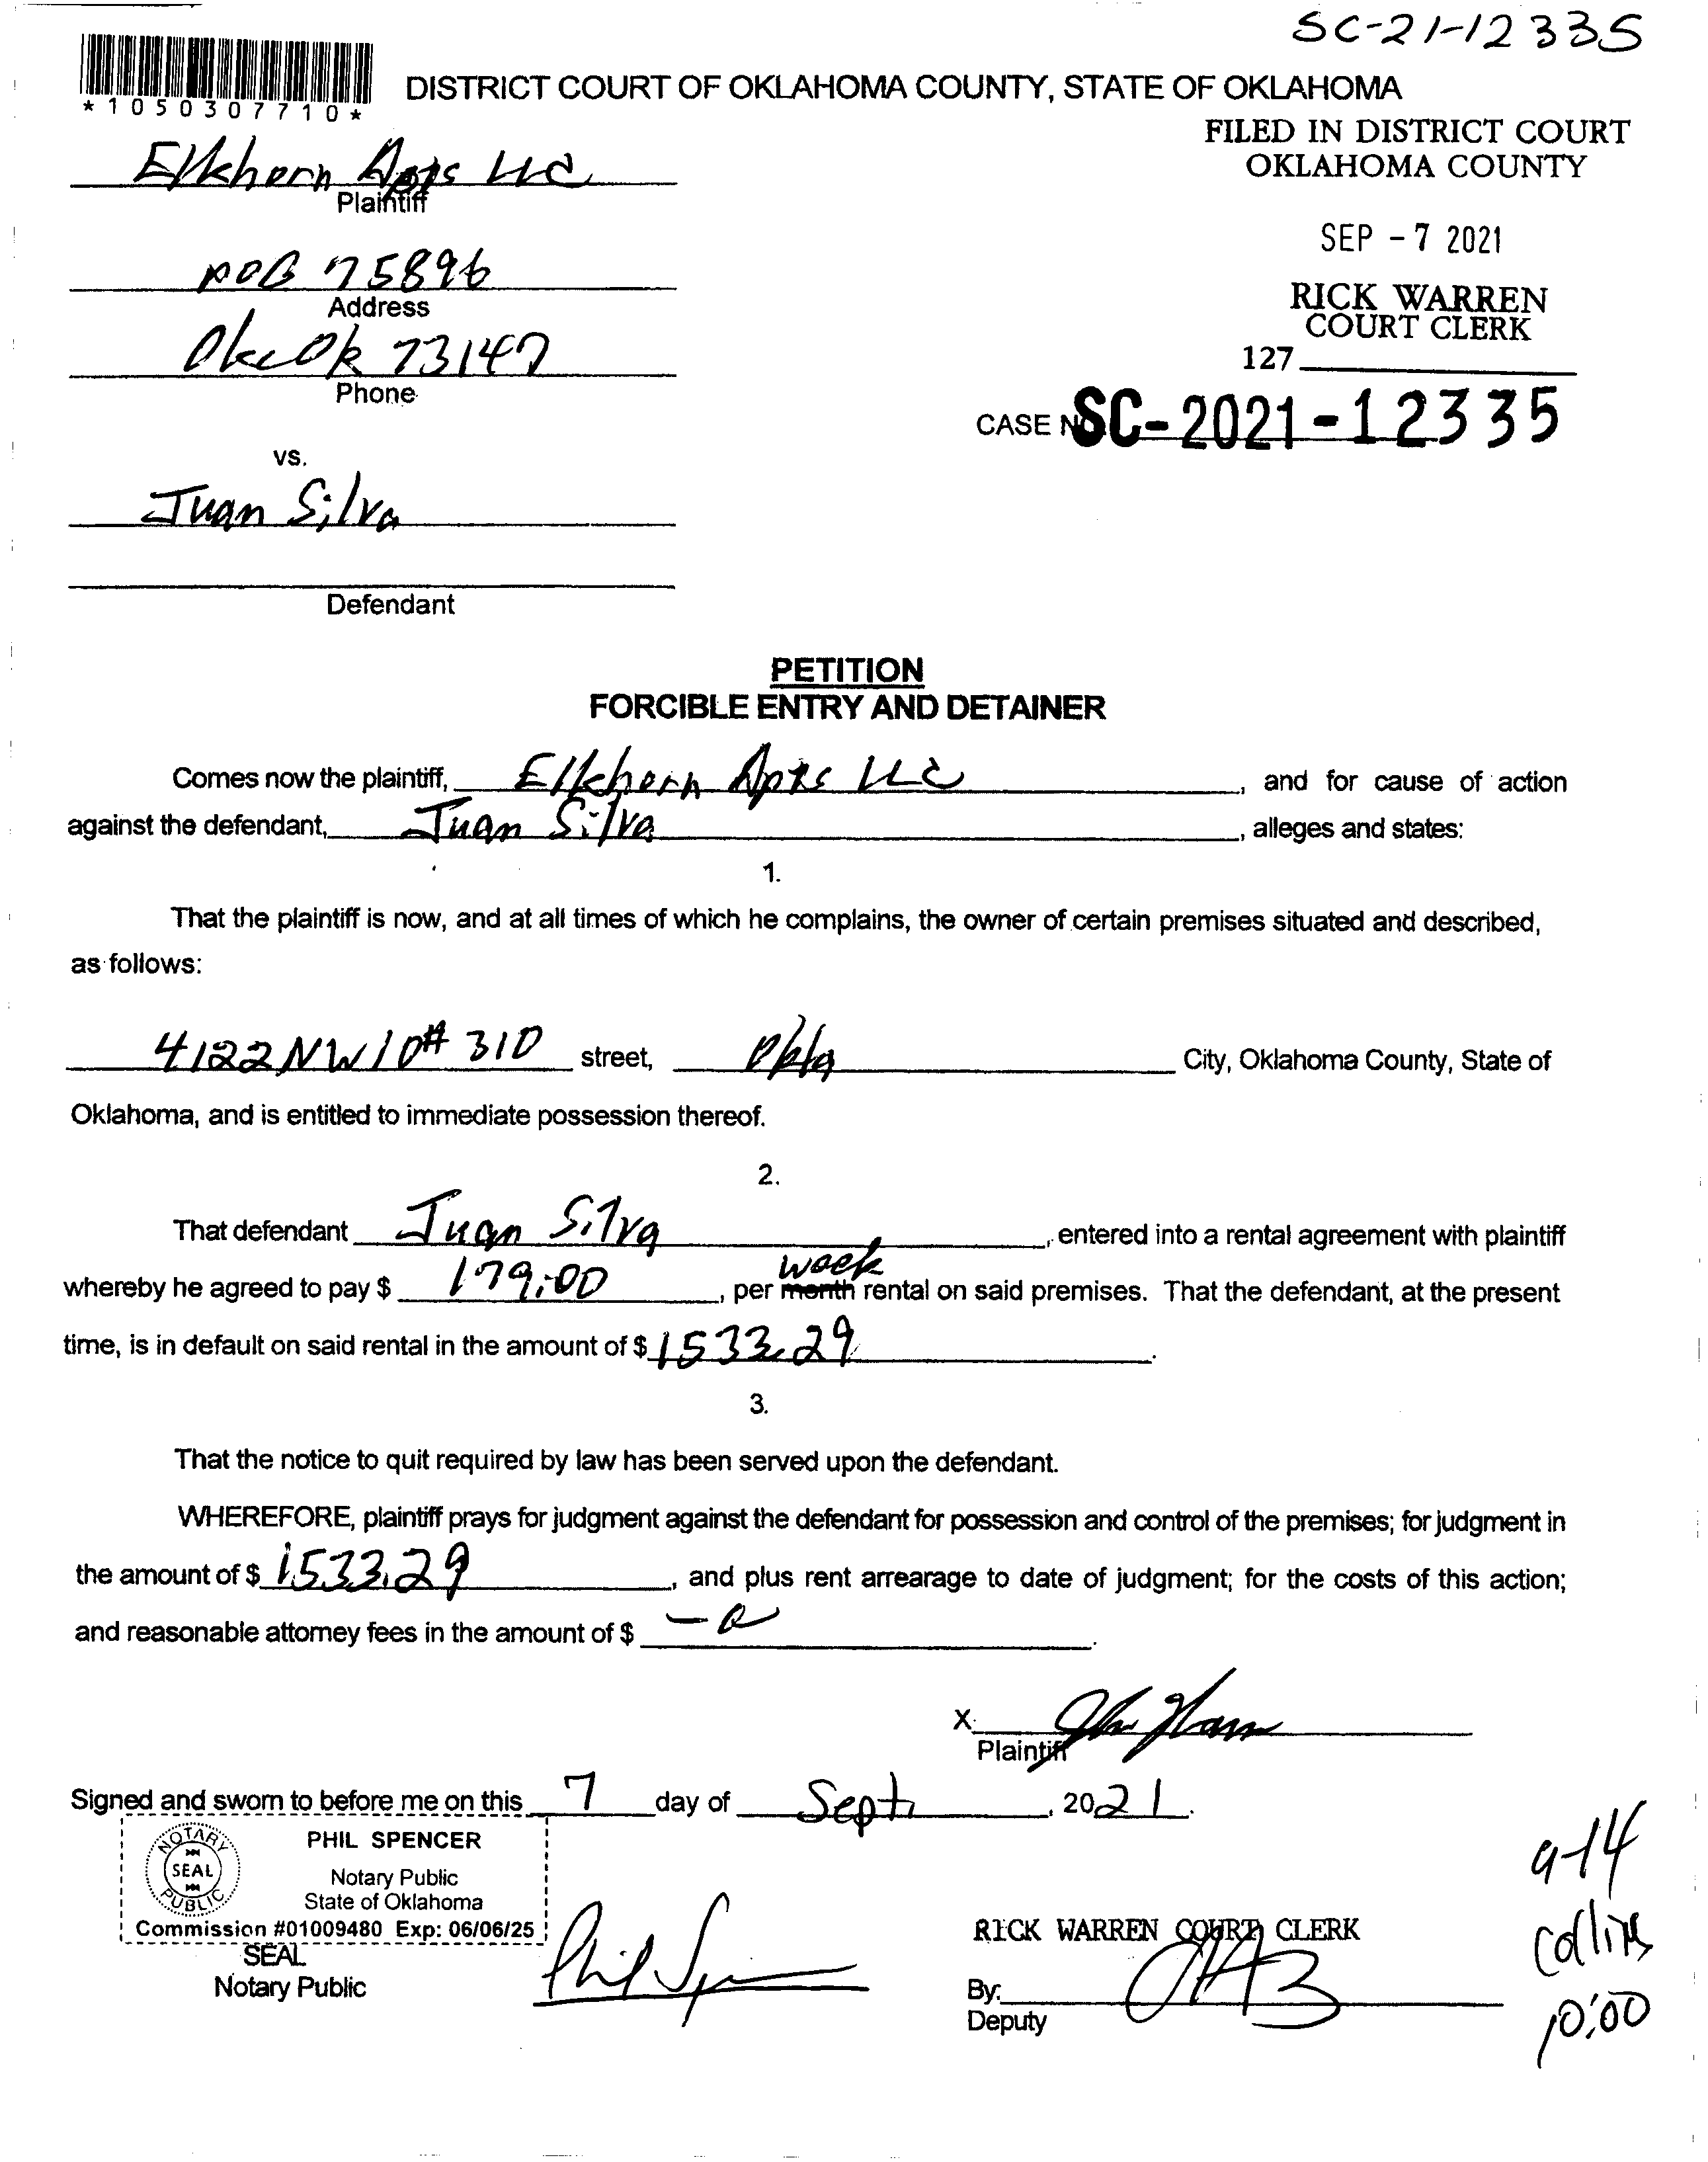 SC-21-12335
*1050307710*
DISTRICT COURT OF OKLAHOMA COUNTY, STATE OF OKLAHOMA
FILED IN DISTRICT COURT
OKLAHOMA COUNTY
Elkhorn Apts LLC
Plaintiff
SEP - 7 2021
POB 75896
Address
RICK WARREN
COURT CLERK
Okc Ok 73147
Phone
127
CASE NO. SC-2021-12335
vs.
Juan Silva
Defendant
PETITION
FORCIBLE ENTRY AND DETAINER
Comes now the plaintiff, Elkhorn Apts LLC, and for cause of action
against the defendant, Juan Silva, alleges and states:
1.
That the plaintiff is now, and at all times of which he complains, the owner of certain premises situated and described,
as follows:
4122 NW 10 # 310 street, Okla City, Oklahoma County, State of
Oklahoma, and is entitled to immediate possession thereof.
2.
That defendant Juan Silva, entered into a rental agreement with plaintiff
week
whereby he agreed to pay $ 179.00, per month rental on said premises. That the defendant, at the present
time, is in default on said rental in the amount of $ 1533.29.
3.
That the notice to quit required by law has been served upon the defendant.
WHEREFORE, plaintiff prays for judgment against the defendant for possession and control of the premises; for judgment in
the amount of $ 1533.29, and plus rent arrearage to date of judgment; for the costs of this action;
and reasonable attorney fees in the amount of $
X
Plaintiff
Signed and sworn to before me on this 7 day of Sept, 2021.
NOTARY PUBLIC
SEAL
PHIL SPENCER
Notary Public
State of Oklahoma
Commission #01009480 Exp: 06/06/25
SEAL
Notary Public
Phil Spencer
RICK WARREN COURT CLERK
By:
Deputy
9-14
Collins
10:00